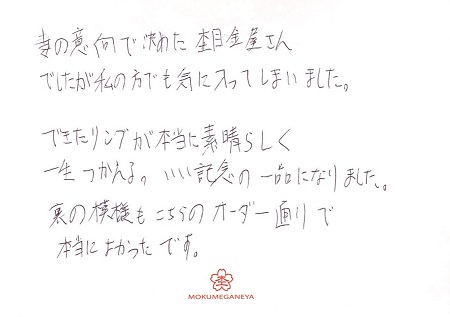 妻の意向で決めた杢目金屋さん
でしたが私の方でも気に入ってしまいました。
できたリングが本当に素晴らしく
一生つかえる。いい記念の一品になりました。
裏の模様もこちらのオーダー通りで
本当によかったです。
杢
MOKUMEGANEYA